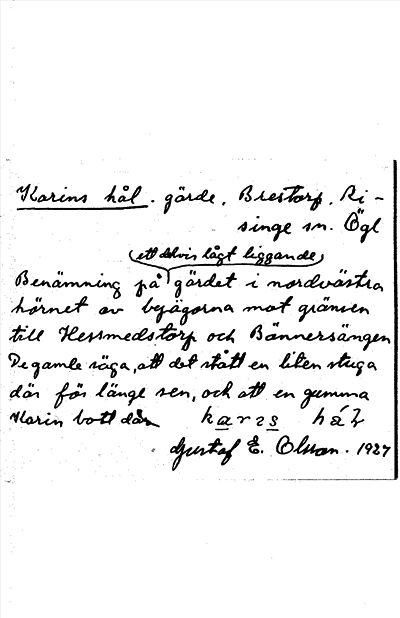 Karins hål. gärde, Brestorp, Ri-
singe sn. Ögl
(ett delvis lågt liggande)
Benämning på gärdet i nordvästra
hörnet av byägorna mot gränsen
till Hessmedstorp och Bännersängen
De gamle säga, att det stått en liten stuga
där för länge sen, och att en gumma
Karin bott där karɪs hál
Gustaf E. Olsson. 1927